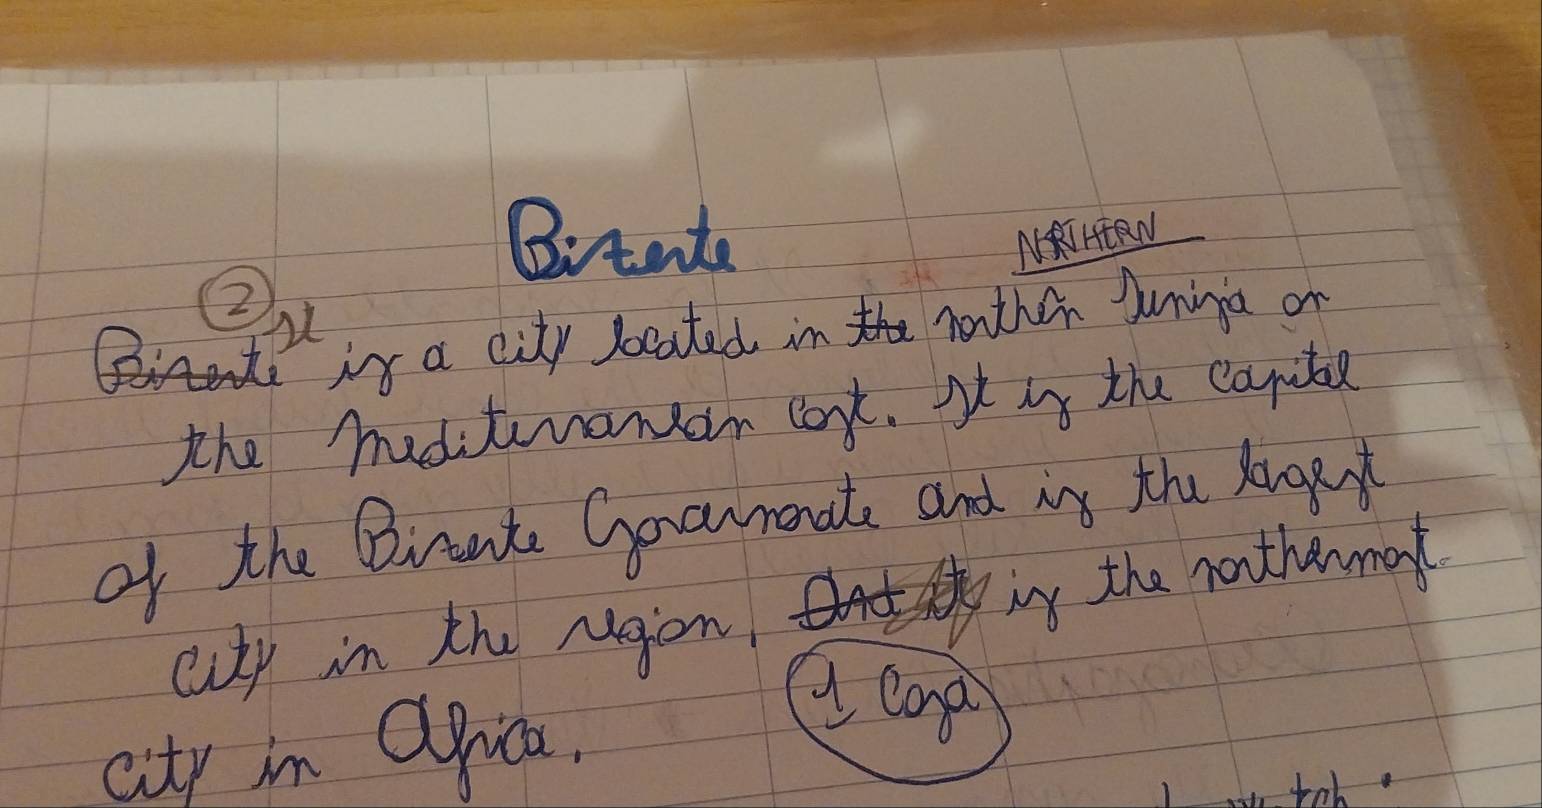 Bizerte
NORTHERN
② It
Bizerte is a city located in the northen Tunisia on
the Mediterranean cost. It is the capital
of the Bizerte Governorate and is the largest
city in the region, And it is the northernmost
city in Africa.
1 Coza